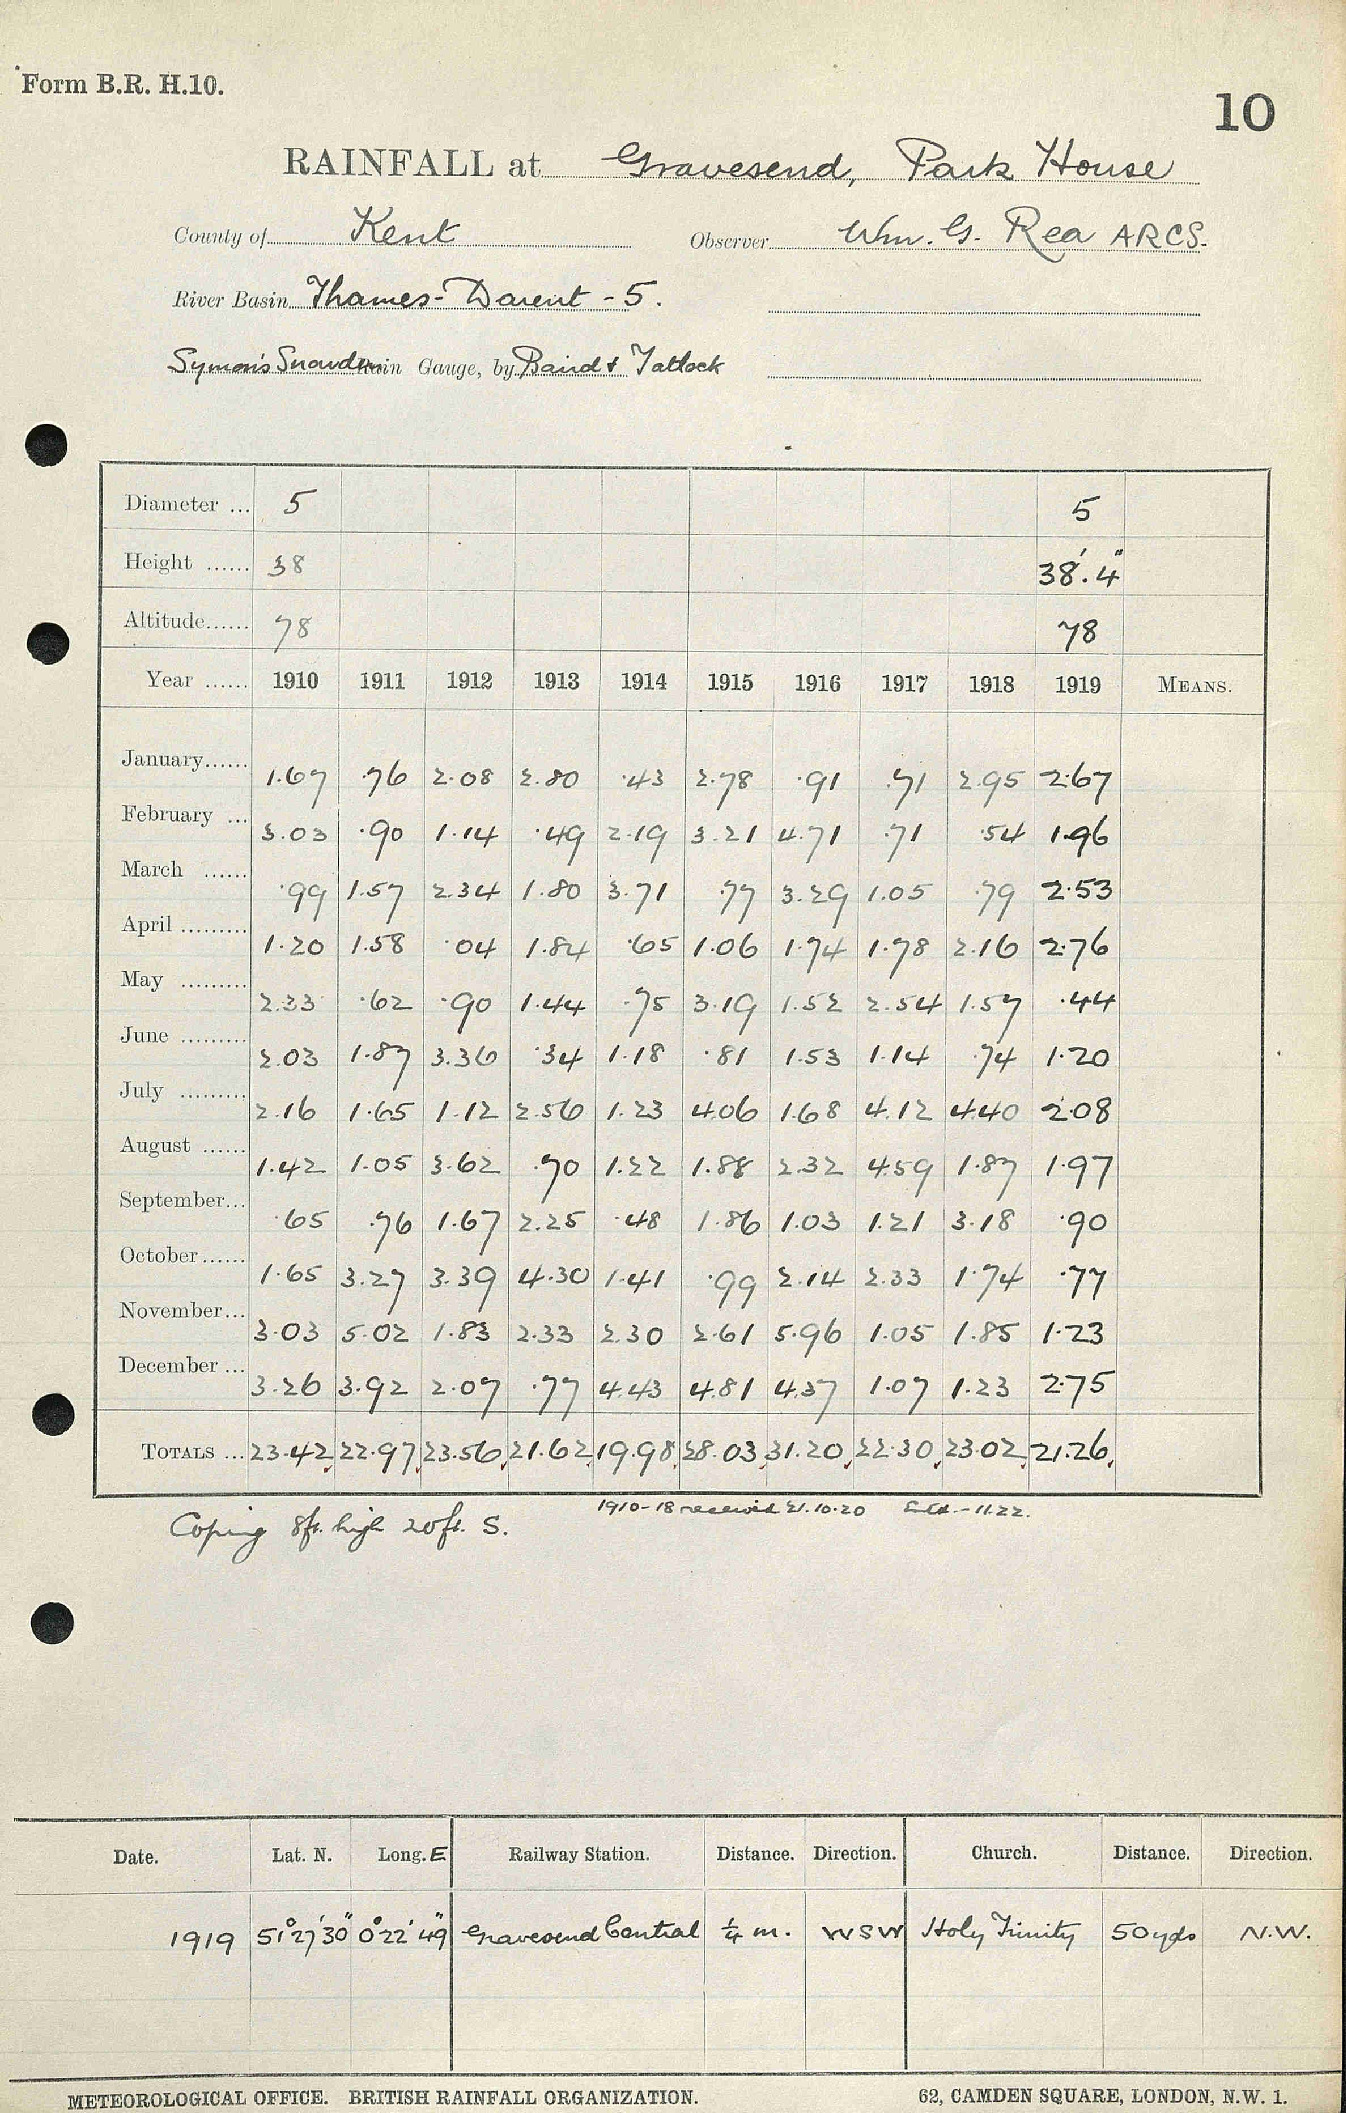 Form B.R. H.10.
10
RAINFALL at Gravesend, Park House
County of Kent Observer Wm. G. Rea ARCS.
River Basin Thames - Darent - 5.
Symon's Snowdon Rain Gauge, by Baird & Tatlock
Diameter ... 5 5
Height ...... 38 38'.4"
Altitude...... 78 78
Year ...... 1910 1911 1912 1913 1914 1915 1916 1917 1918 1919 MEANS.
January...... 1.67 .76 2.08 2.80 .43 2.78 .91 .71 2.95 2.67
February ... 3.03 .90 1.14 .49 2.19 3.21 4.71 .71 .54 1.96
March ...... .99 1.57 2.34 1.80 3.71 .77 3.29 1.05 .79 2.53
April ......... 1.20 1.58 .04 1.84 .65 1.06 1.74 1.78 2.16 2.76
May ......... 2.33 .62 .90 1.44 .75 3.19 1.52 2.54 1.57 .44
June ......... 2.03 1.87 3.36 .34 1.18 .81 1.53 1.14 .74 1.20
July ......... 2.16 1.65 1.12 2.56 1.23 4.06 1.68 4.12 4.40 2.08
August ...... 1.42 1.05 3.62 .70 1.22 1.88 2.32 4.59 1.87 1.97
September... .65 .76 1.67 2.25 .48 1.86 1.03 1.21 3.18 .90
October...... 1.65 3.27 3.39 4.30 1.41 .99 2.14 2.33 1.74 .77
November... 3.03 5.02 1.83 2.33 2.30 2.61 5.96 1.05 1.85 1.23
December ... 3.26 3.92 2.07 .77 4.43 4.81 4.37 1.07 1.23 2.75
TOTALS ... 23.42 22.97 23.56 21.62 19.98 28.03 31.20 22.30 23.02 21.26
1910-18 received 21.10.20 - 11.22.
Coping 8ft. high 20ft. S.
Date. Lat. N. Long. E Railway Station. Distance. Direction. Church. Distance. Direction.
1919 51°27'30" 0°22'49" Gravesend Central ¼ m. WSW Holy Trinity 50 yds N.W.
METEOROLOGICAL OFFICE. BRITISH RAINFALL ORGANIZATION. 62, CAMDEN SQUARE, LONDON, N.W. 1.